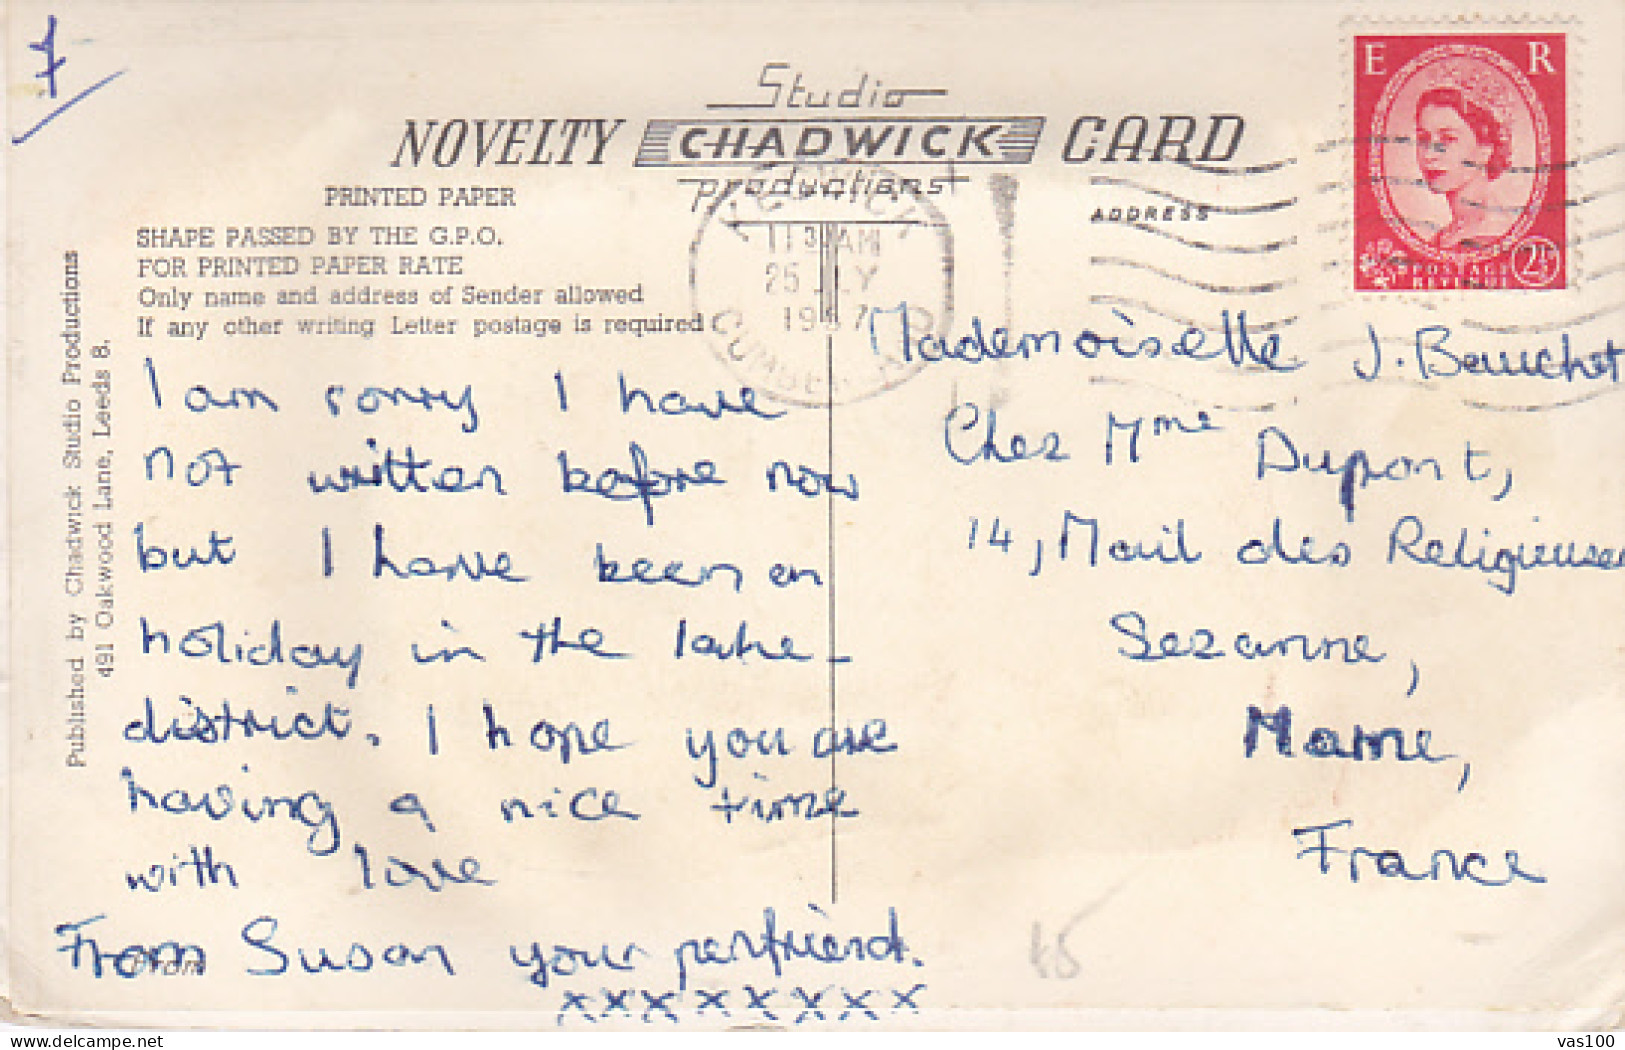 7
Studio
NOVELTY CHADWICK CARD
productions
PRINTED PAPER
SHAPE PASSED BY THE G.P.O.
FOR PRINTED PAPER RATE
Only name and address of Sender allowed
If any other writing Letter postage is required
Published by Chadwick Studio Productions
491 Oakwood Lane, Leeds 8.
ADDRESS
E R
POSTAGE
REVENUE
2½D
KESWICK
AM
25 JLY
CUMBERLAND
I am sorry I have
not written before now
but I have been on
holiday in the lake-
district. I hope you are
having a nice time
with love
From Susan your penfriend.
xxxxxxxx
Mademoiselle J. Beuchet
Chez Mme Dupont,
14, Mail des Religieuses
Sezanne,
Marne,
France
vas100